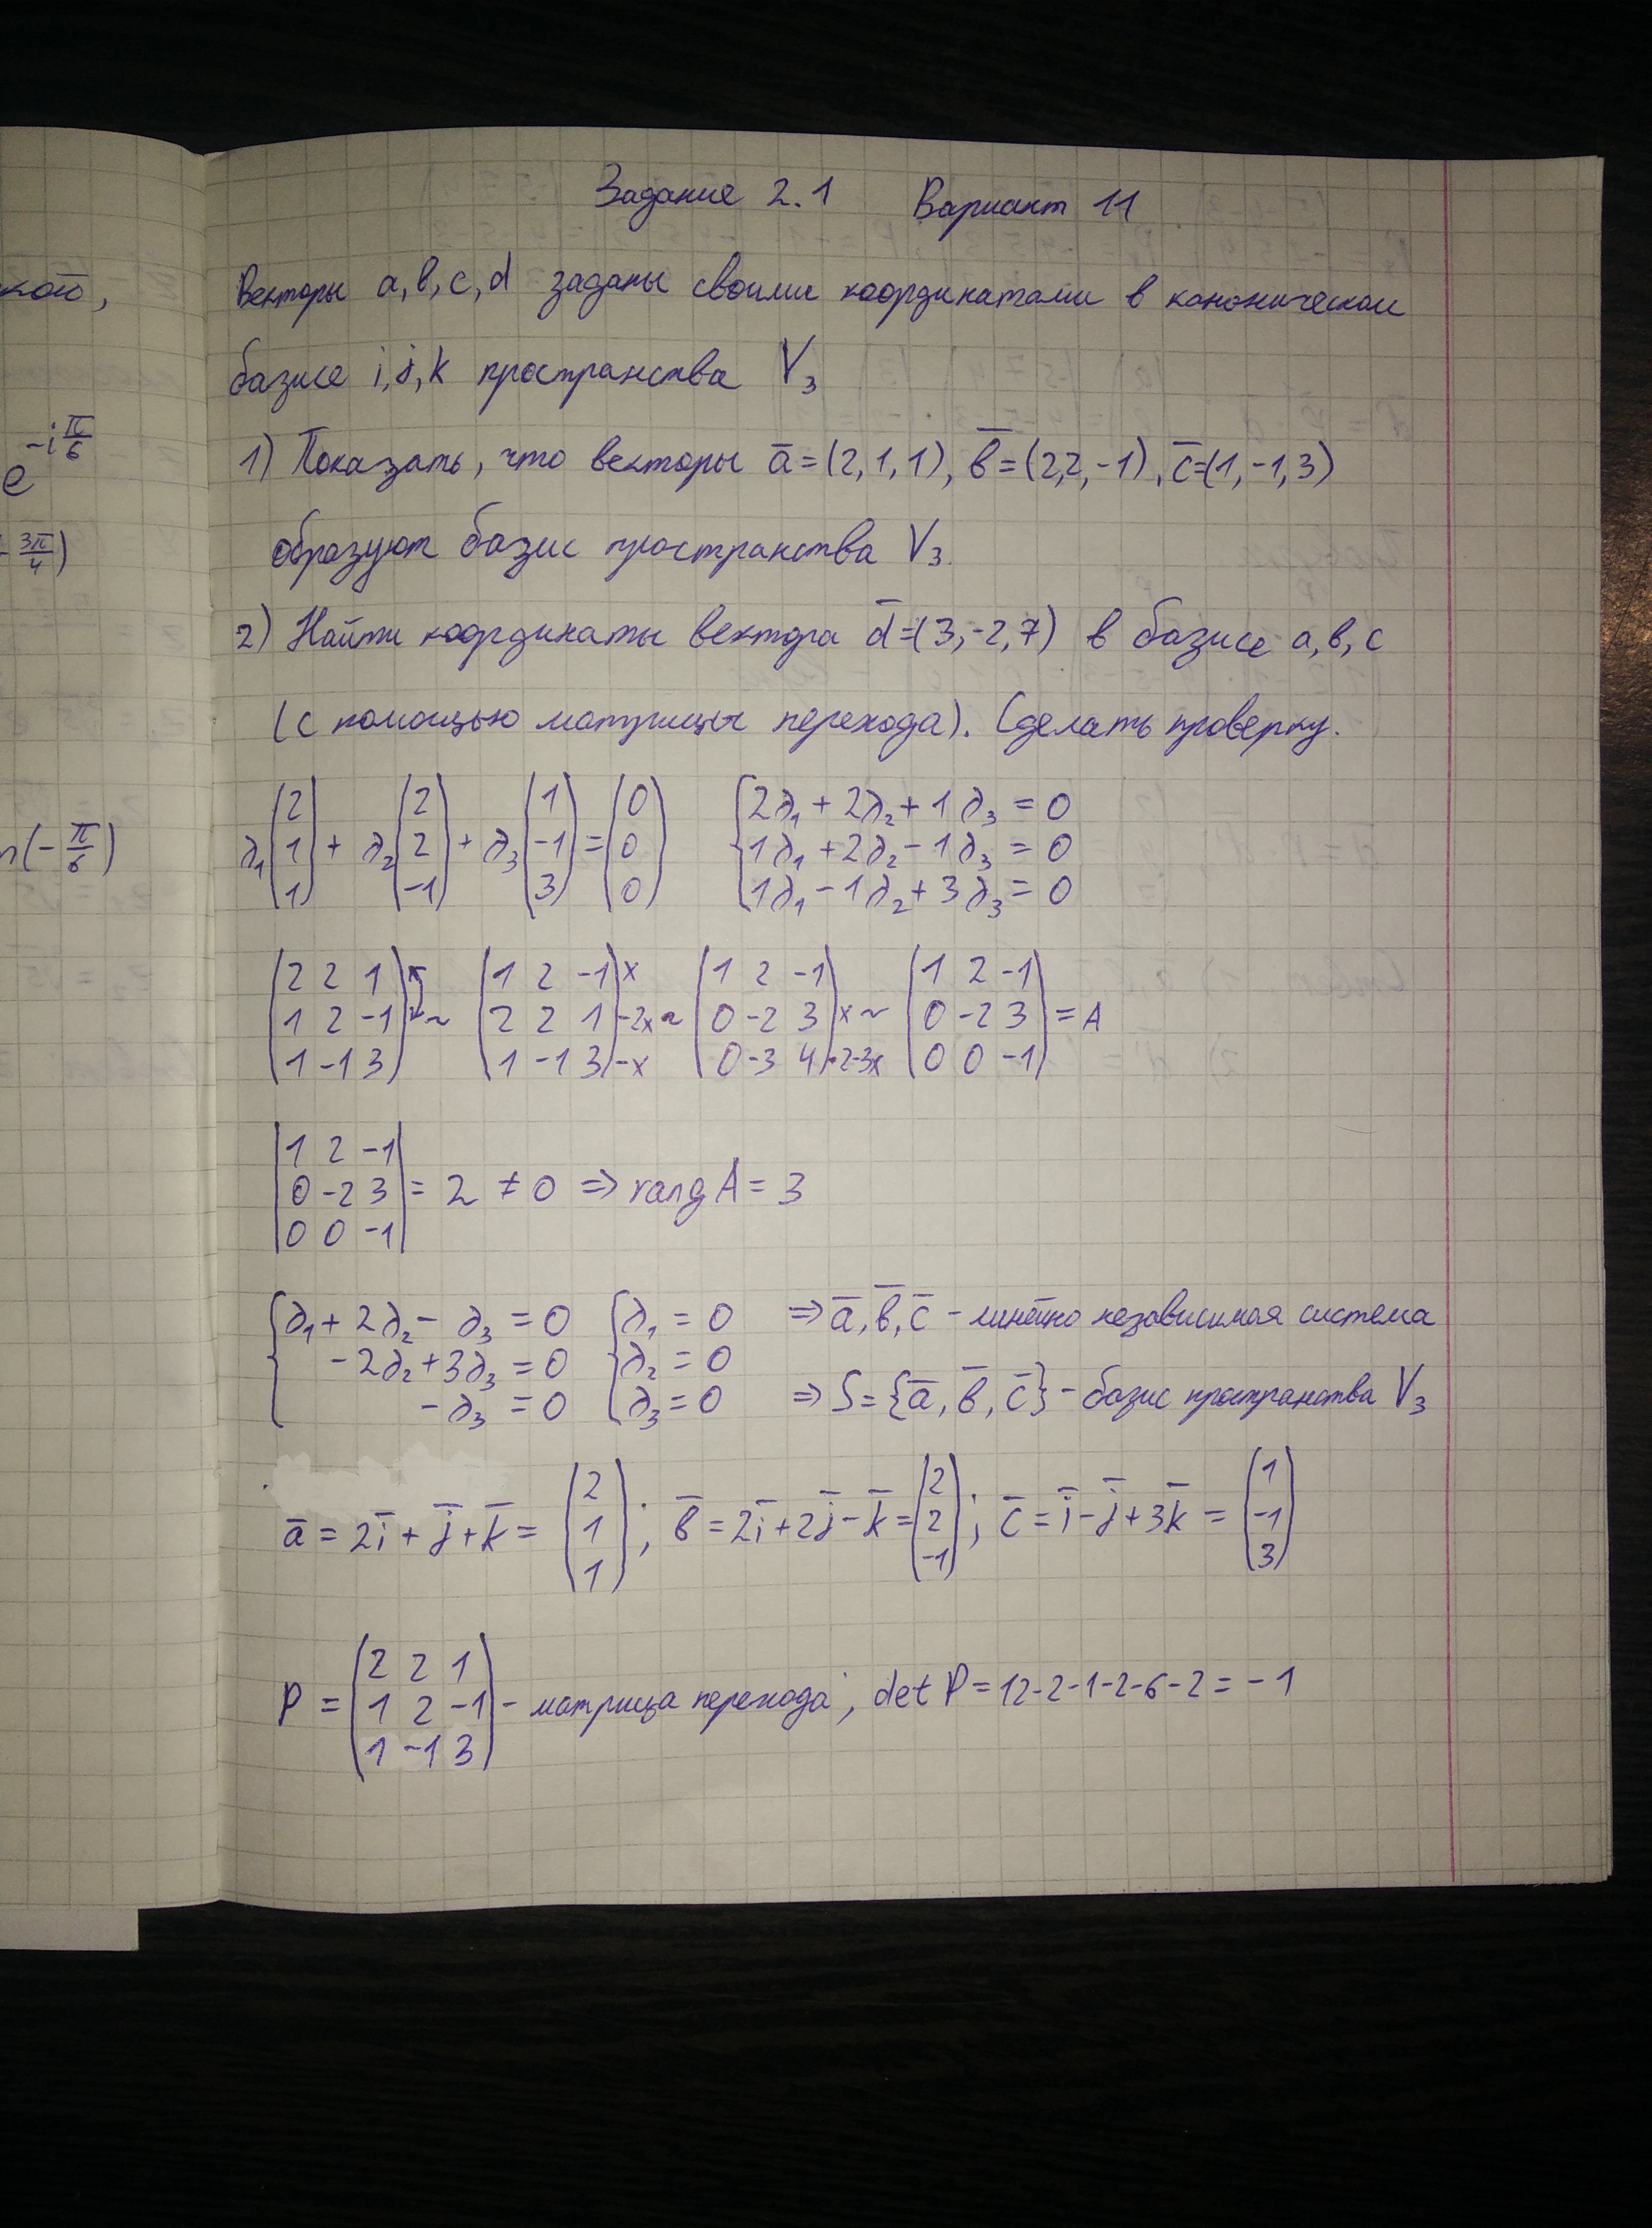 кой,
e^{-iπ/6}
3π/4)
n(-π/6)
Задание 2.1 Вариант 11
Векторы a, b, c, d заданы своими координатами в каноническом
базисе i, j, k пространства V₃
1) Показать, что векторы a̅=(2,1,1), b̅=(2,2,-1), c̅=(1,-1,3)
образуют базис пространства V₃.
2) Найти координаты вектора d̅=(3,-2,7) в базисе a, b, c
(с помощью матрицы перехода). Сделать проверку.
λ₁(2 1 1) + λ₂(2 2 -1) + λ₃(1 -1 3) = (0 0 0) {2λ₁ + 2λ₂ + 1λ₃ = 0
1λ₁ + 2λ₂ - 1λ₃ = 0
1λ₁ - 1λ₂ + 3λ₃ = 0
(2 2 1) (1 2 -1) x (1 2 -1) (1 2 -1)
(1 2 -1) ~ (2 2 1) -2x ~ (0 -2 3) x ~ (0 -2 3) = A
(1 -1 3) (1 -1 3) -x (0 -3 4) ·2-3x (0 0 -1)
|1 2 -1|
|0 -2 3| = 2 ≠ 0 ⇒ rang A = 3
|0 0 -1|
{λ₁ + 2λ₂ - λ₃ = 0 {λ₁ = 0 ⇒ a̅, b̅, c̅ - линейно независимая система
-2λ₂ + 3λ₃ = 0 λ₂ = 0
-λ₃ = 0 λ₃ = 0 ⇒ S = {a̅, b̅, c̅} - базис пространства V₃
a̅ = 2i̅ + j̅ + k̅ = (2 1 1); b̅ = 2i̅ + 2j̅ - k̅ = (2 2 -1); c̅ = i̅ - j̅ + 3k̅ = (1 -1 3)
(2 2 1)
P = (1 2 -1) - матрица перехода; det P = 12-2-1-2-6-2 = -1
(1 -1 3)